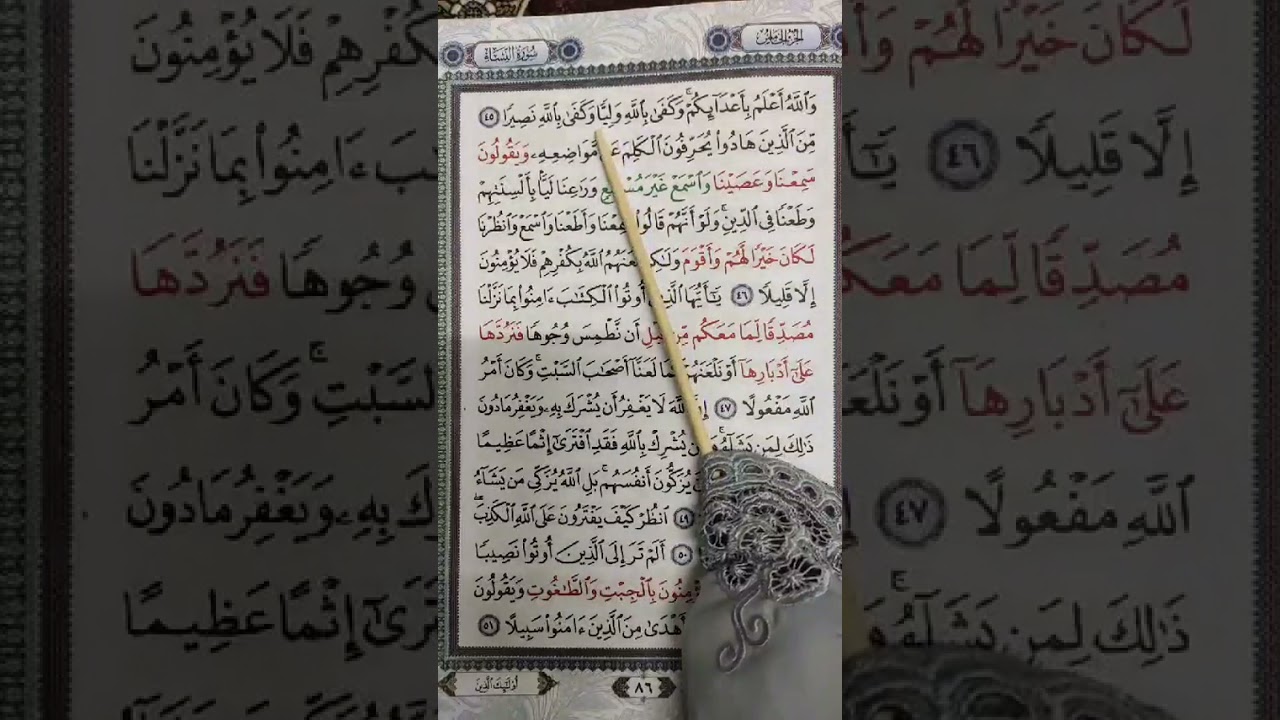 الجزء الخامس
سورة النساء
وَٱللَّهُ أَعْلَمُ بِأَعْدَآئِكُمْ ۚ وَكَفَىٰ بِٱللَّهِ وَلِيًّا وَكَفَىٰ بِٱللَّهِ نَصِيرًا ٤٥
مِّنَ ٱلَّذِينَ هَادُوا۟ يُحَرِّفُونَ ٱلْكَلِمَ مَّوَاضِعِهِۦ وَيَقُولُونَ
سَمِعْنَا وَعَصَيْنَا وَٱسْمَعْ غَيْرَ وَرَٰعِنَا لَيًّۢا بِأَلْسِنَتِهِمْ
وَطَعْنًا فِى ٱلدِّينِ ۚ وَلَوْ أَنَّهُمْ قَالُوا۟ وَأَطَعْنَا وَٱسْمَعْ وَٱنظُرْنَا
لَكَانَ خَيْرًا لَّهُمْ وَأَقْوَمَ وَلَٰكِن ٱللَّهُ بِكُفْرِهِمْ فَلَا يُؤْمِنُونَ
إِلَّا قَلِيلًا ٤٦ يَٰٓأَيُّهَا ٱلَّذِينَ أُوتُوا۟ ٱلْكِتَٰبَ ءَامِنُوا۟ بِمَا نَزَّلْنَا
مُصَدِّقًا لِّمَا مَعَكُم مِّن أَن نَّطْمِسَ وُجُوهًا فَنَرُدَّهَا
عَلَىٰٓ أَدْبَارِهَآ أَوْ نَلْعَنَهُمْ لَعَنَّآ أَصْحَٰبَ ٱلسَّبْتِ ۚ وَكَانَ أَمْرُ
ٱللَّهِ مَفْعُولًا ٤٧ إِنَّ ٱللَّهَ لَا يَغْفِرُ أَن يُشْرَكَ بِهِۦ وَيَغْفِرُ مَا دُونَ
ذَٰلِكَ لِمَن يَشَآءُ ۚ يُشْرِكْ بِٱللَّهِ فَقَدِ ٱفْتَرَىٰٓ إِثْمًا عَظِيمًا
يُزَكُّونَ أَنفُسَهُم ۚ بَلِ ٱللَّهُ يُزَكِّى مَن يَشَآءُ
٤٩ ٱنظُرْ كَيْفَ يَفْتَرُونَ عَلَى ٱللَّهِ ٱلْكَذِبَ ۖ
٥٠ أَلَمْ تَرَ إِلَى ٱلَّذِينَ أُوتُوا۟ نَصِيبًا
بِٱلْجِبْتِ وَٱلطَّٰغُوتِ وَيَقُولُونَ
أَهْدَىٰ مِنَ ٱلَّذِينَ ءَامَنُوا۟ سَبِيلًا ٥١
٨٦
أُو۟لَٰٓئِكَ ٱلَّذِينَ